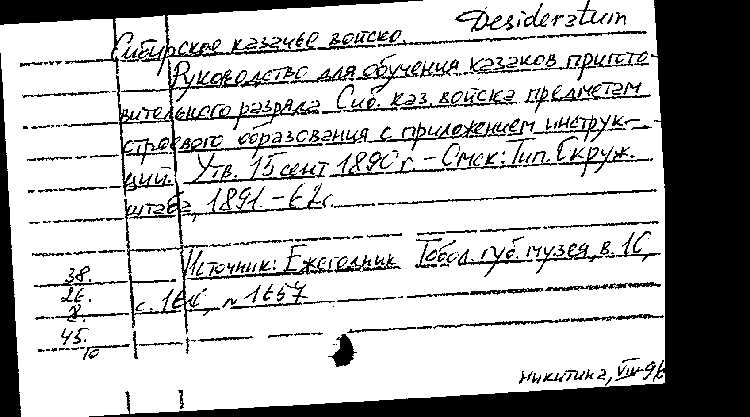 Desideratum
Сибирское казачье войско.
Руководство для обучения казаков пригото-
вительного разряда Сиб. каз. войска предметам
строевого образования с приложением инструк-
ций. Утв. 15 сент 1890 г. - Омск: Тип. Окруж.
штаба, 1891 - 62 с.
Источник: Ежегодник Тобол. губ. музея, в. 10,
с. , № 1657
38.
26.
8.
45.
10
Никитина, VIII-